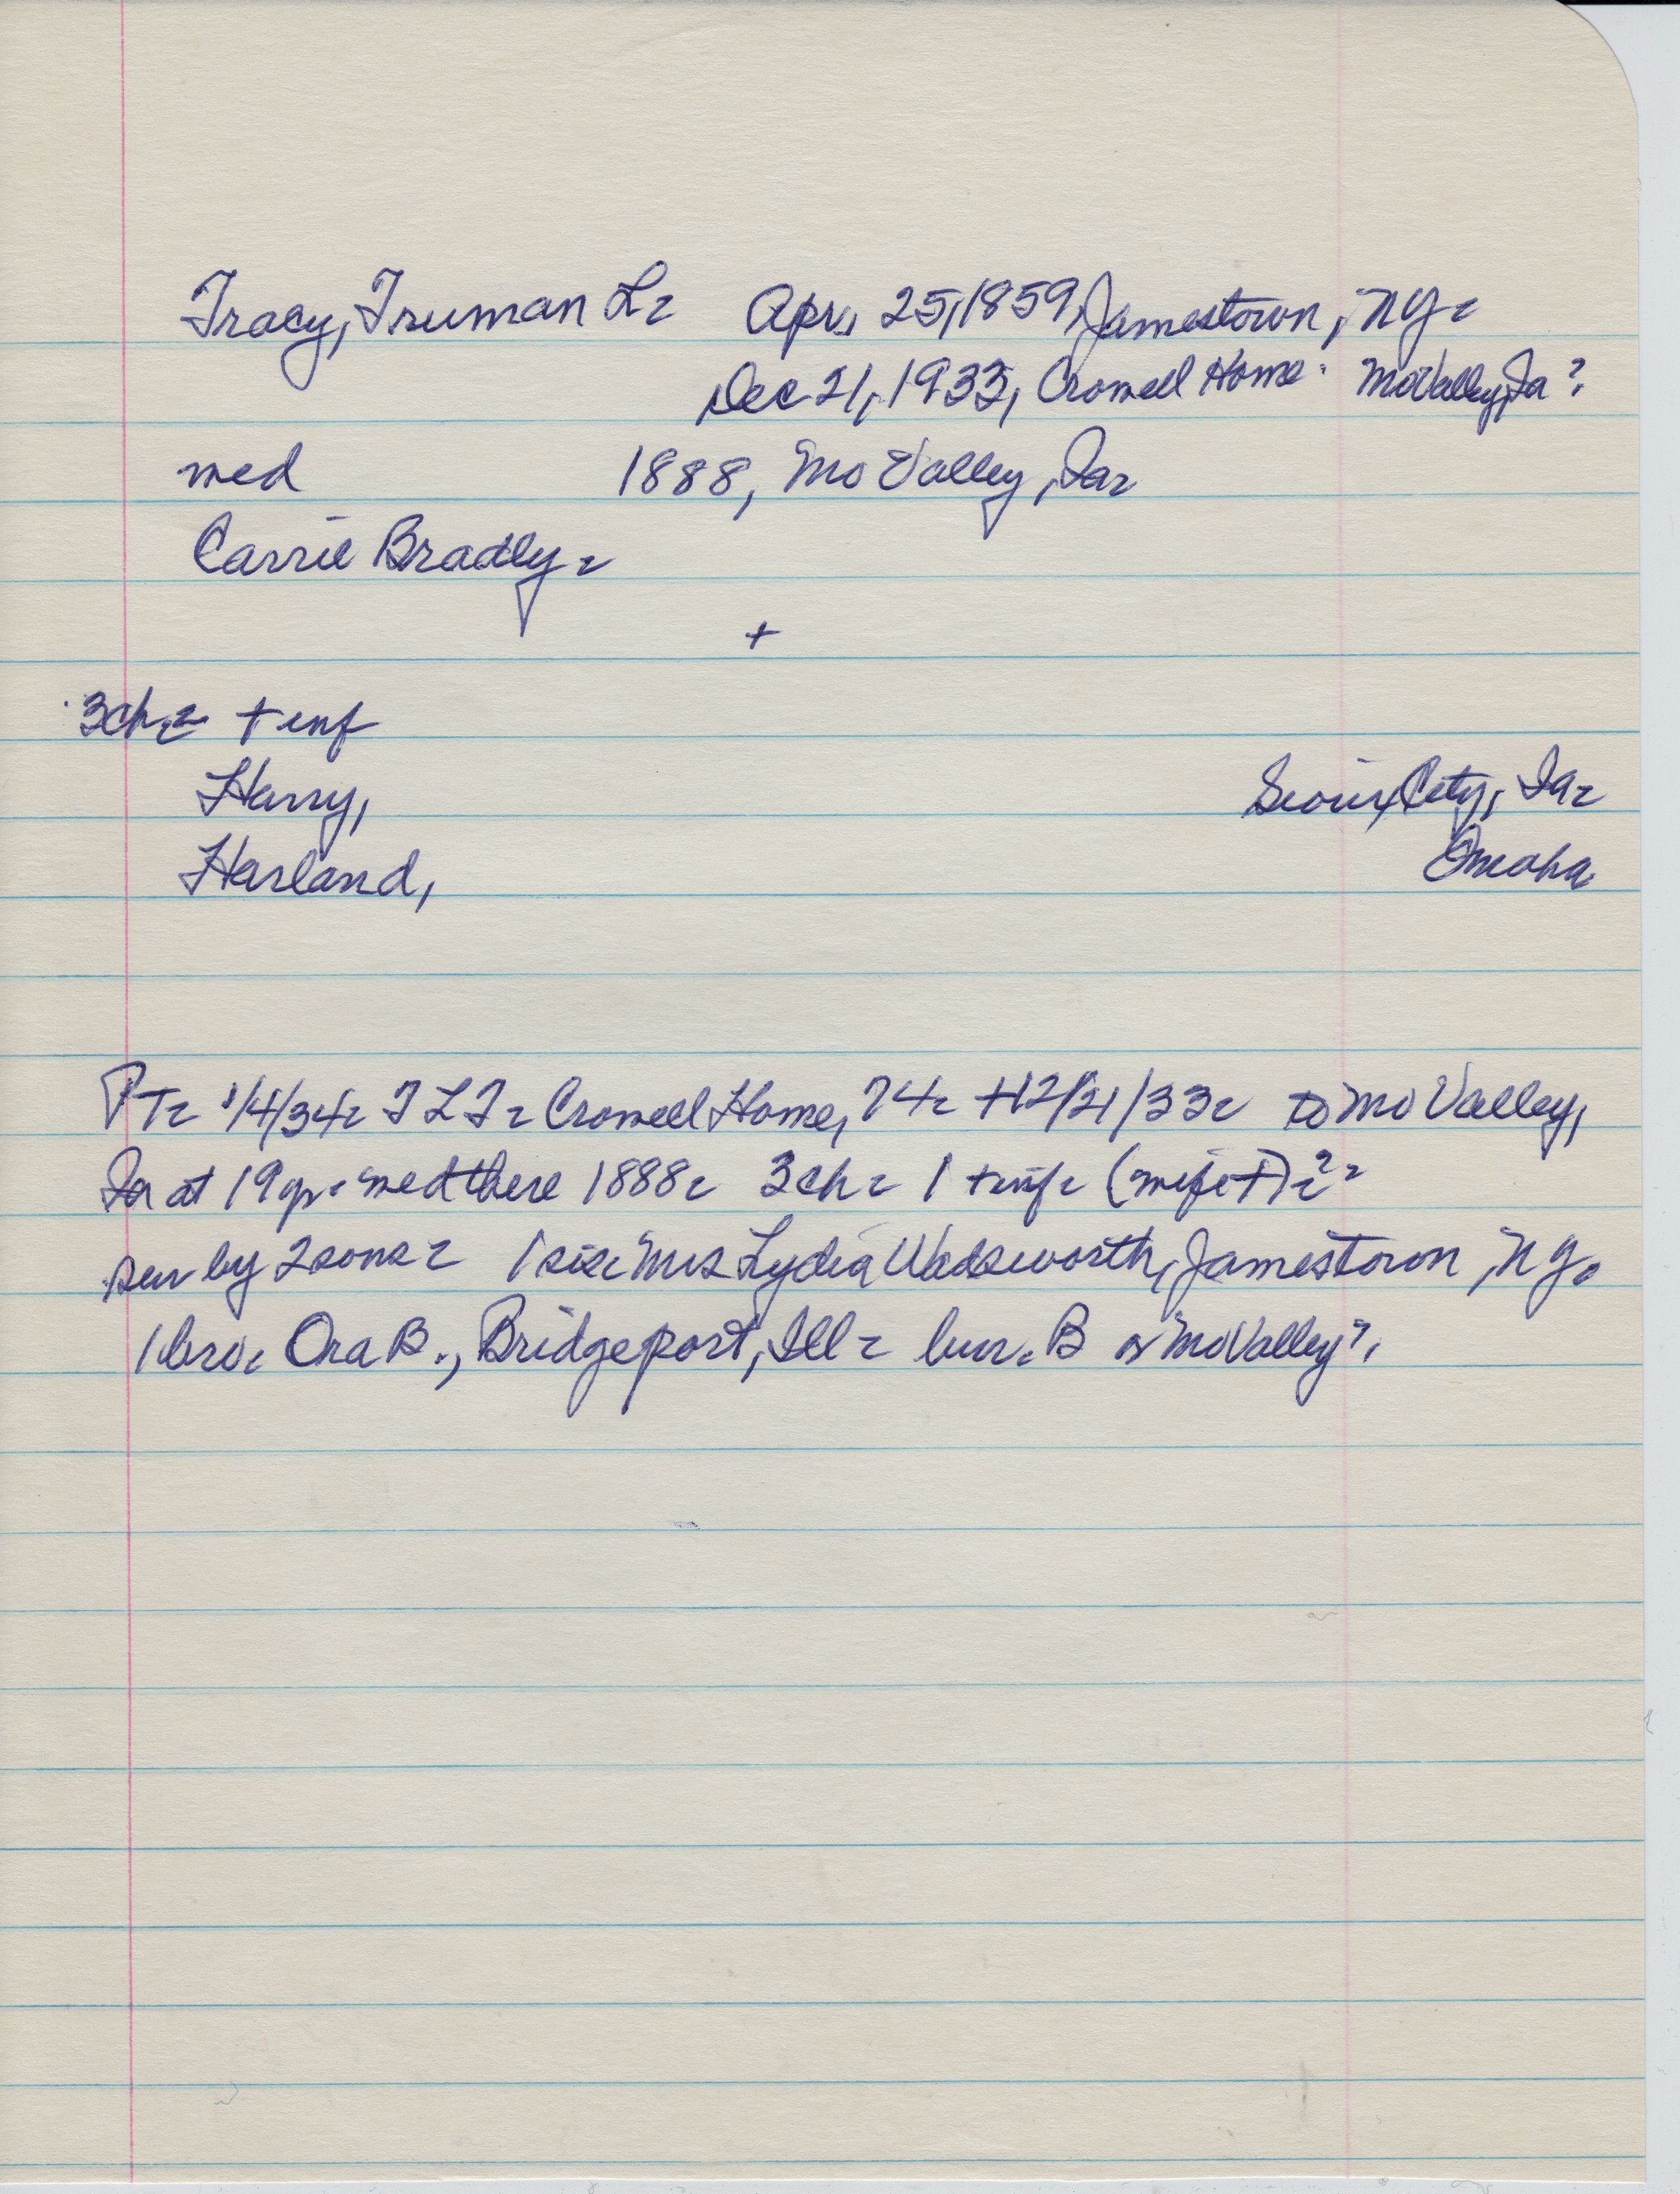 Tracy, Truman L. Apr. 25, 1859, Jamestown, NY.
Dec 21, 1933, Crowell Home. Mo Valley, Ia?
med 1888, Mo Valley, Ia.
Carrie Bradly.
+
3ch. + inf
Harry, Sioux City, Ia.
Harland, Omaha
PT. 1/4/34. T L T. Crowell Home, 74. +12/21/33. to Mo Valley,
Ia at 19 yr. med there 1888. 3 ch. 1 + inf. (wife +)?.
sur by 2 sons. 1 sis. Mrs Lydia Wadsworth, Jamestown, N Y.
1 bro. Ora B., Bridgeport, Ill. bur. B or Mo Valley?.